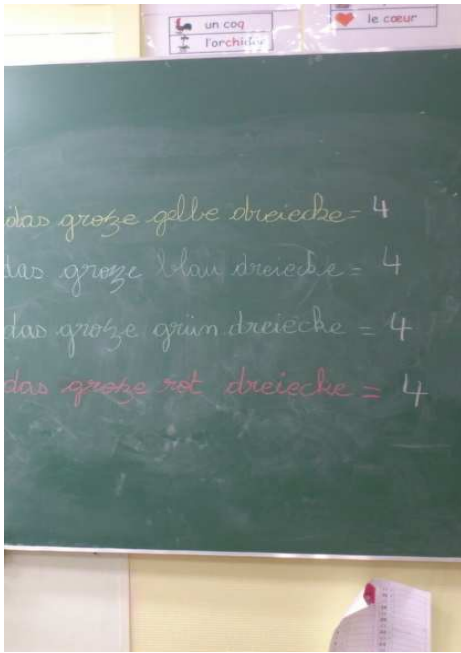 un coq
l'orchidée
le cœur
das große gelbe dreiecke = 4
das große blau dreiecke = 4
das große grün dreiecke = 4
das große rot dreiecke = 4